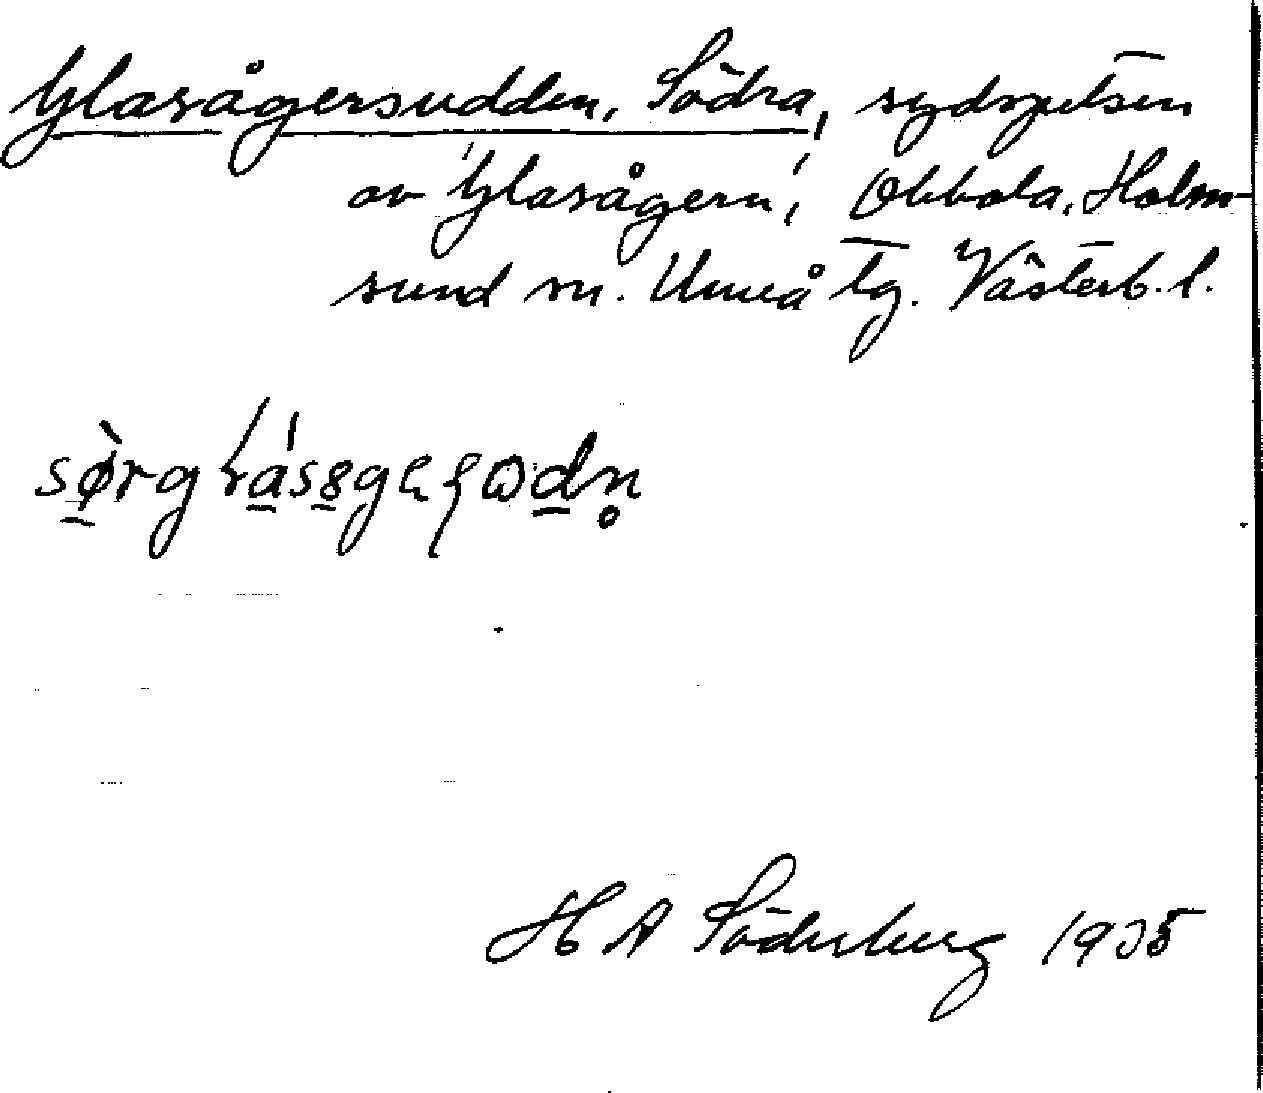 Glasågersudden, Södra, sydspetsen
av 'Glasågern', Obbola, Holm-
sund sn. Umeå tg. Västerb. l.
H A Söderberg 1935